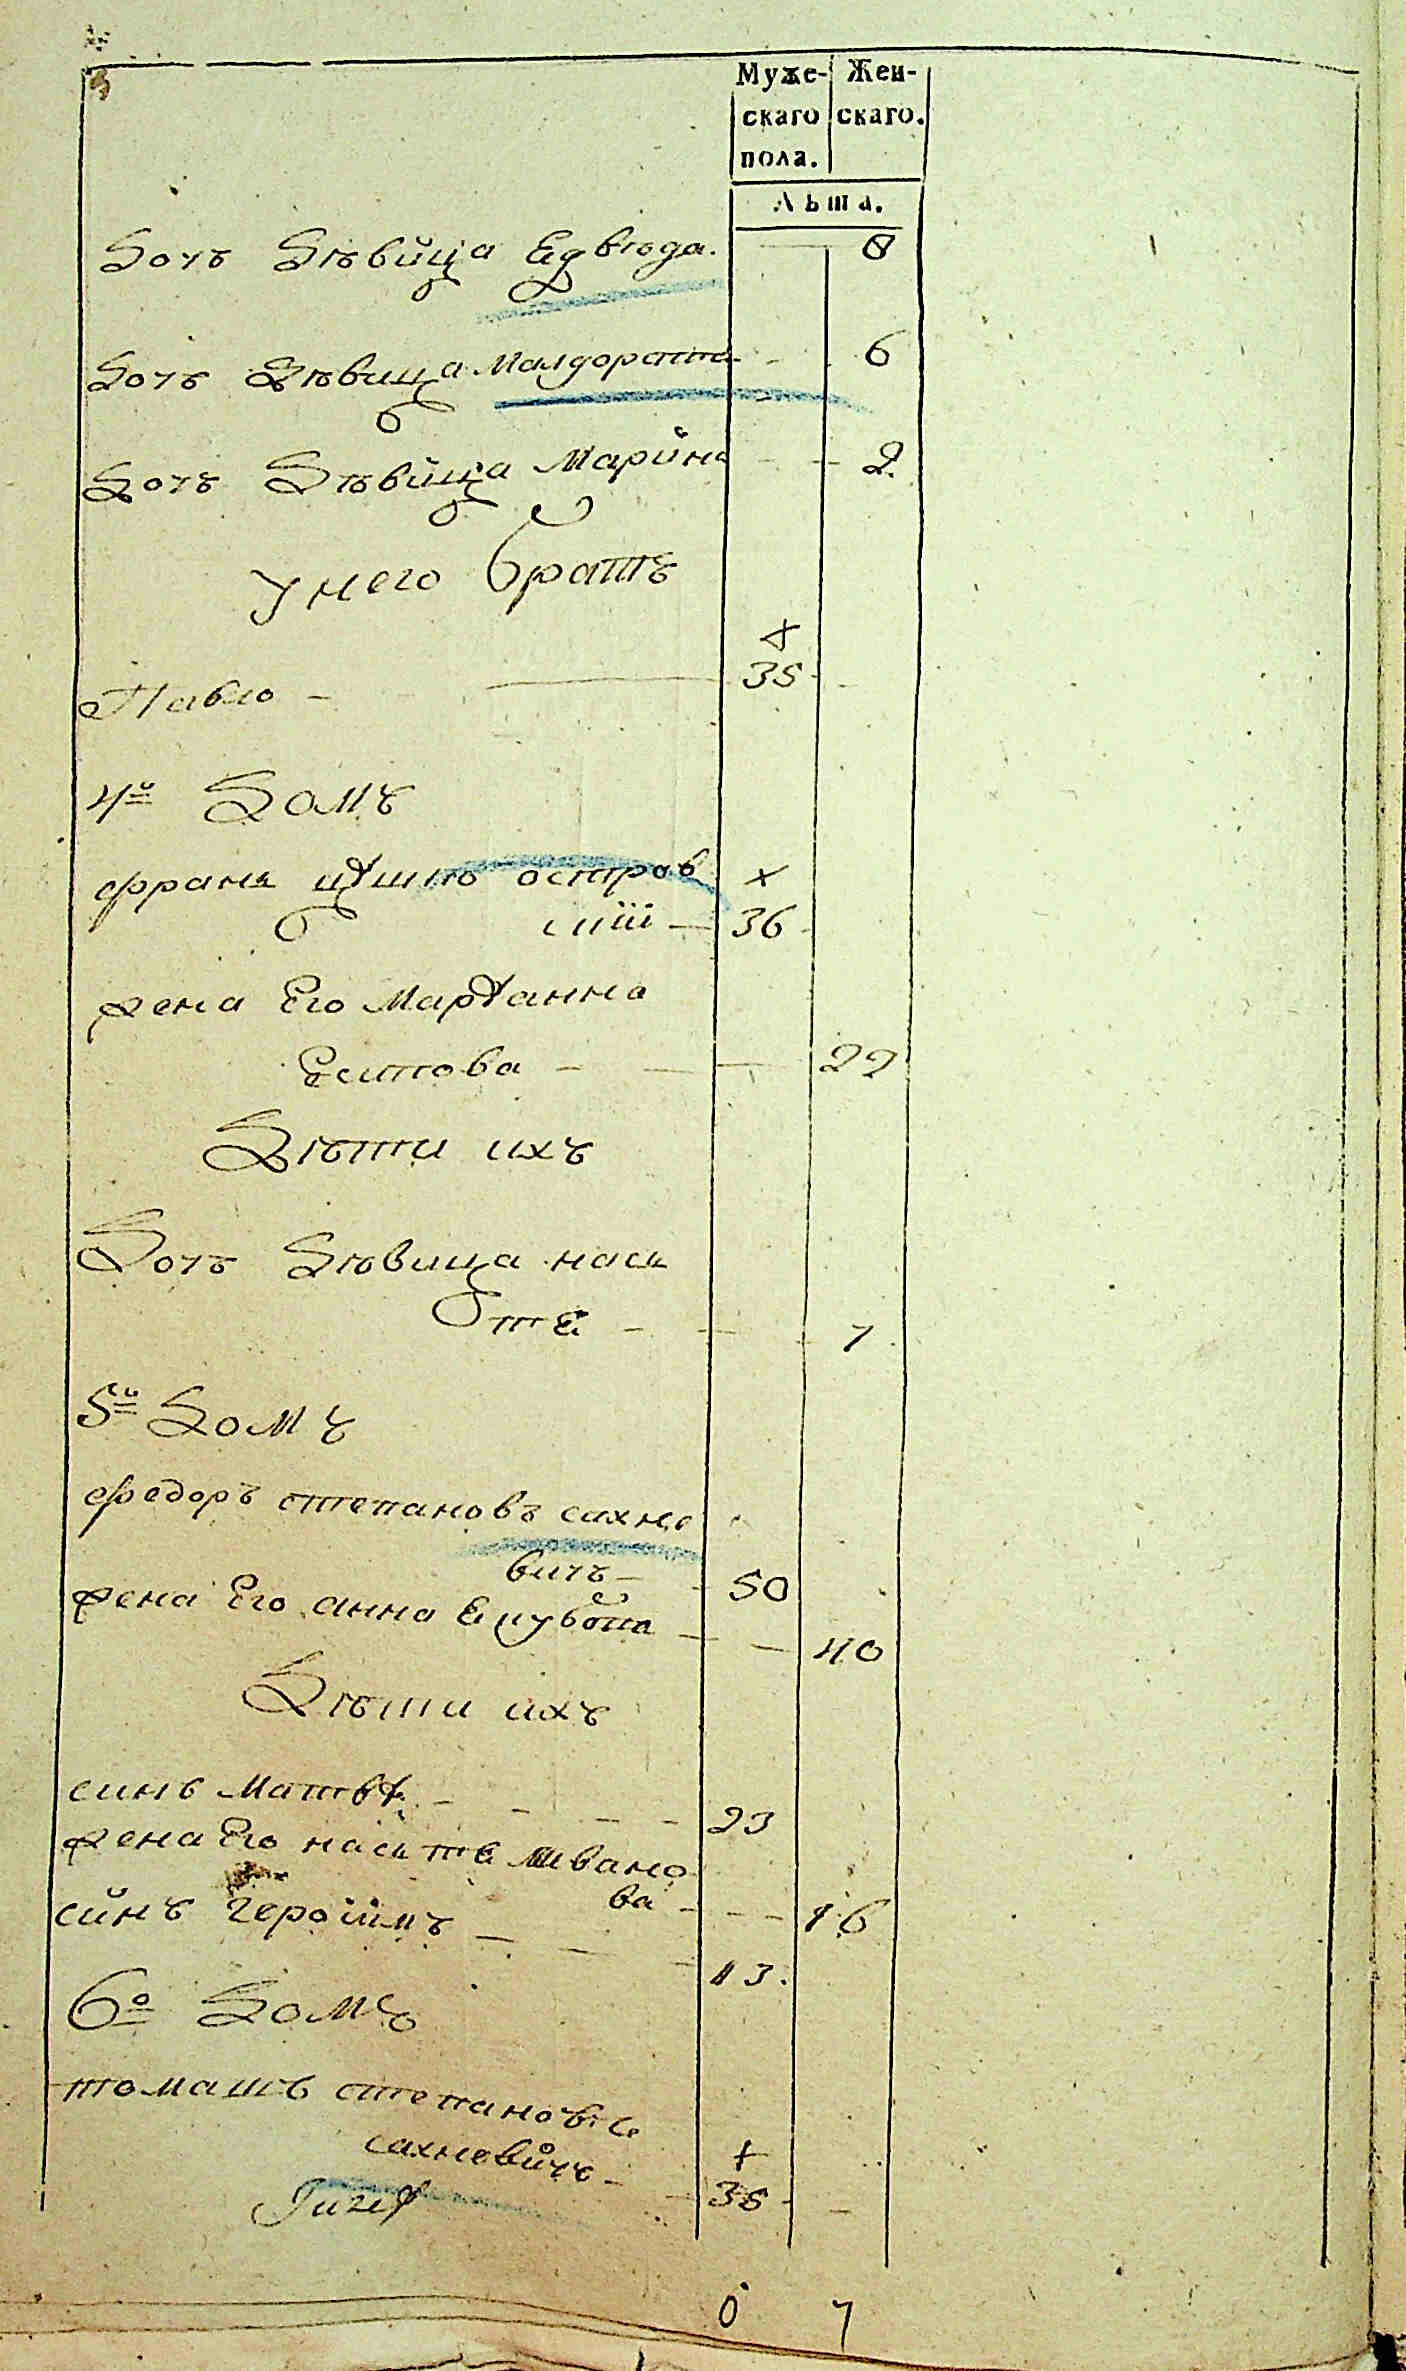 Муже- Жен-
скаго скаго.
пола.
Лѣта.
Дочъ Дѣвйца Едвюда. 8
Дочъ Дѣвица Малдората 6
Дочъ Дѣвйца Марйна 2.
у него братъ
×
Павло 35
4й Домъ
×
францѣшко остров
ский 36
жена Его Марѣанна
Еситова 22
Дѣти ихъ
Дочъ Дѣвица насъ
тѣ 7
5й Домъ
федоръ степановъ сахно
вичъ 50
жена Его анна 40
Дѣти ихъ
синъ Матвѣ 23
жена Его насътѣ Ивано
ва 16
сйнъ героймъ 13.
6й Домъ
томашъ степановъ
×
сахневйчъ 38
6 7